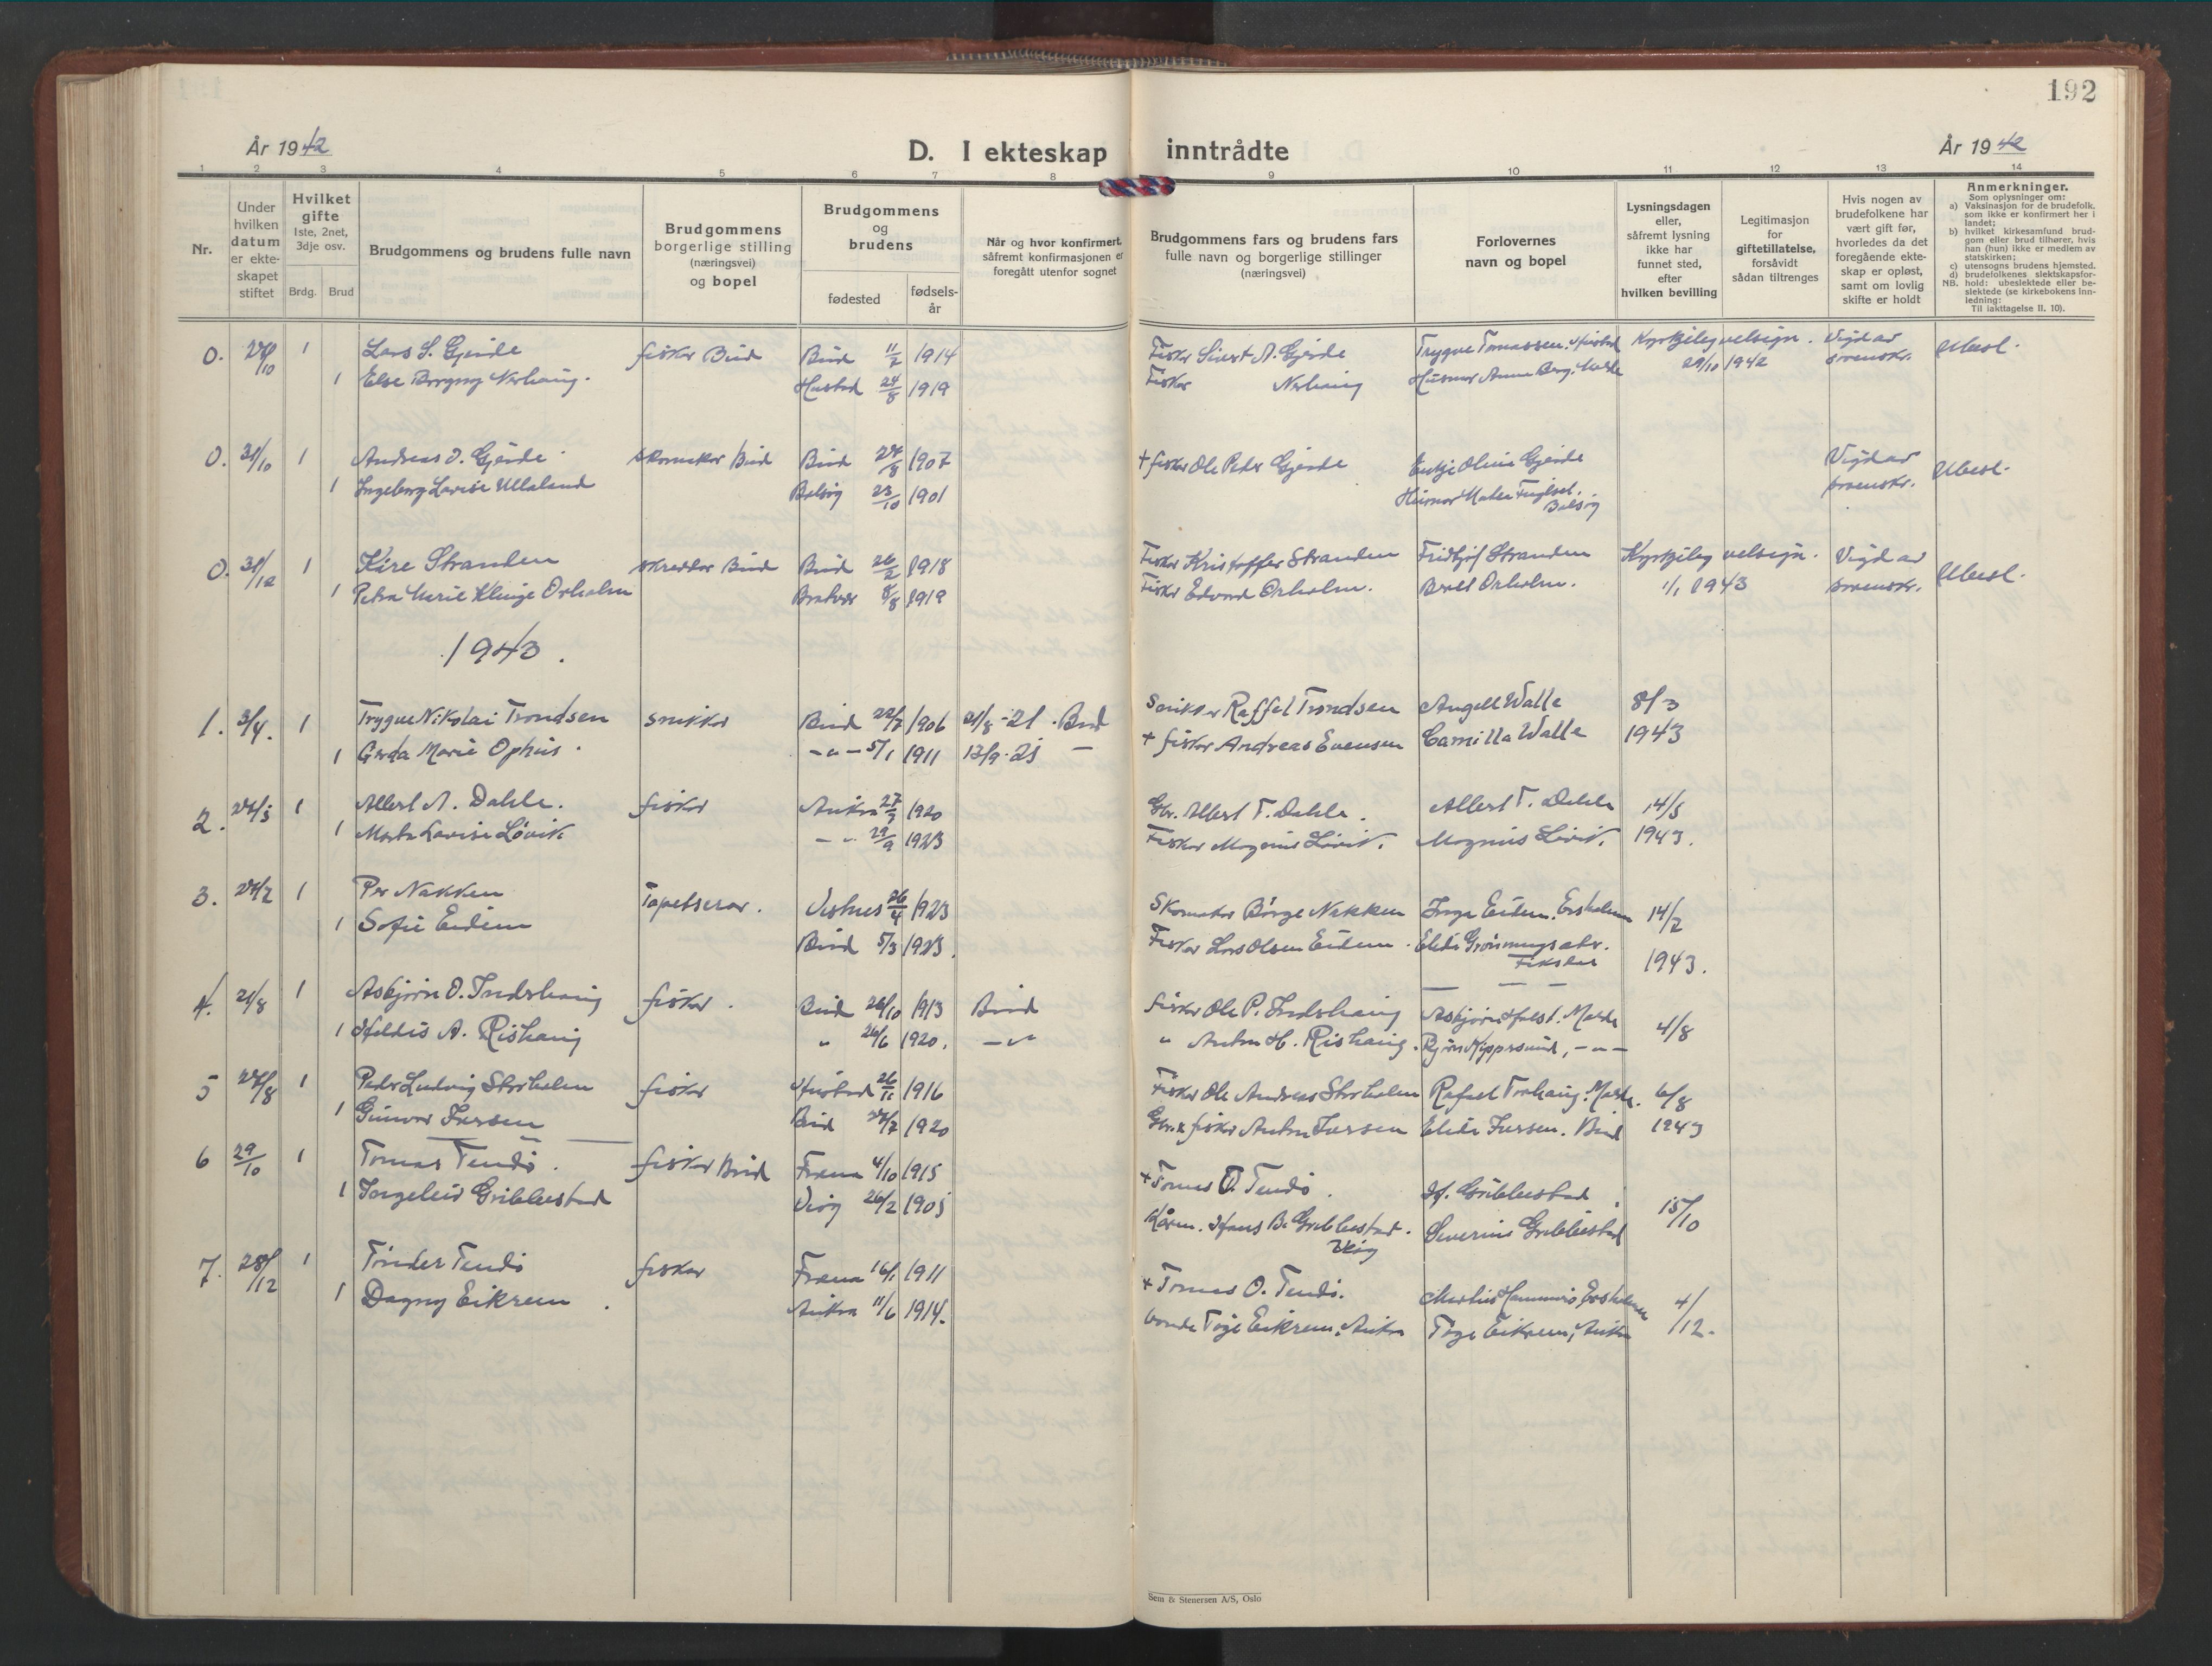 192
År 1942
D. I ekteskap inntrådte
År 1942
1 2 3 4 5 6 7 8 9 10 11 12 13 14
Nr.
Under hvilken datum er ekte-skapet stiftet
Hvilket gifte 1ste, 2net, 3dje osv.
Brdg. Brud
Brudgommens og brudens fulle navn
Brudgommens borgerlige stilling (næringsvei) og bopel
Brudgommens og brudens
fødested
fødsels-år
Når og hvor konfirmert, såfremt konfirmasjonen er foregått utenfor sognet
Brudgommens fars og brudens fars fulle navn og borgerlige stillinger (næringsvei)
Forlovernes navn og bopel
Lysningsdagen eller, såfremt lysning ikke har funnet sted, efter hvilken bevilling
Legitimasjon for giftetillatelse, forsåvidt sådan tiltrenges
Hvis nogen av brudefolkene har vært gift før, hvorledes da det foregående ekte-skap er opløst, samt om lovlig skifte er holdt
Anmerkninger.
Som oplysninger om:
a) Vaksinasjon for de brudefolk, som ikke er konfirmert her i landet;
b) hvilket kirkesamfund brud-gom eller brud tilhører, hvis han (hun) ikke er medlem av statskirken;
c) utensogns brudens hjemsted.
d) brudefolkenes slektskapsfor-hold: ubeslektede eller be-slektede (se kirkebokens Inn-ledning:
NB. Til iakttagelse II. 10).
0. 1 Lars S. Gjerde fisker Bud Bud 11/2 1914 Fisker Sivert A. Gjerde Trygve Tomassen, Hustad Kyrkjeleg velsign. Vigd av Ubesl.
1 Else Borgny Nerhaug. Hustad 24/8 1919 Fisker Nerhaug Husmor Anna Berg, Molde 29/10 1942 sorenskr.
0. 31/10 1 Andreas O. Gjerde skomaker Bud Bud 1907 + fisker Ole Peder Gjerde Enkje Oline Gjerde Vigd av Ubesl.
1 Ingeborg Lovise Ullaland Bolsøy 23/10 1901 Husmor sorenskr.
Bolsøy
0. 31/12 1 Kåre Stranden skredder Bud Bud 26/2 1918 Fisker Kristoffer Stranden Fridtjof Stranden Kyrkjeleg velsign. Vigd av Ubesl.
1 Petra Marie Klinge Orholm 8/8 1919 Fisker Edvard Orholm. Orholm. 1/1 1943 sorenskr.
1943.
1. 3/4. 1 Trygve Nikolai Trondsen snikker Bud 22/7 1906 21/8-21. Bud Snikker Raffel Trondsen Angell Walle 8/3
1 Gerda Marie Ophus. -"- 5/1 1911 13/9-25 - + fisker Andreas Evensen Camilla Walle 1943
2. 1 Allert A. Dahle. fisker Aukra 1920 Gbr. Allert T. Dahle. Allert T. Dahle 14/5
1 Marta Lovise Løvik -"- 29/9 1923 Fisker Magnus Løvik. Magnus Løvik. 1943.
3. 1 Per Nakken Tapetserer. Vestnes 26/4 1923 Skomaker Børge Nakken Inga Eidem, 14/7
1 Sofie Eidem Bud 5/3 1923. Fisker Lars Olsen Eidem.
1943.
4. 21/8 1 Asbjørn O. Indrehaug fisker. Bud 1913 Bud fisker Ole P. Indrehaug 4/8
1 Heldis A. Rishaug " 26/6 1920. -"- " Anton H. Rishaug. -"-
5 27/8 1 Peder Ludvig Storholm fisker Hustad 26/11 1916 Fisker Ole Andreas Storholm Rafael 6/8
1 Gunvor Iversen Bud 27/7 1920 Gbr. & fisker Anton Iversen Elida Iversen. Bud 1943
6 29/10 1 Tomas Tendø. fisker Bud Fræna 4/10 1915 + Tomas O. Tendø. H. Gribbestad 15/10
1 Ingeleiv Gribbestad Veøy 26/2 1905 Hans B. Gribbestad. Severine Gribbestad
Veøy
7. 28/12 1 Tinder Tendø fisker Fræna 16/1 1911 + Tomas O. Tendø. 4/12.
1 Dagny Eikrem. Aukra 11/6 1914. bonde Tøge Eikrem, Aukra Tøge Eikrem, Aukra
Sem & Stenersen A/S, Oslo